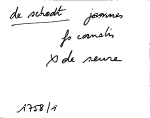 de schodt joannes
fs cornelis
X de seure
1758/1